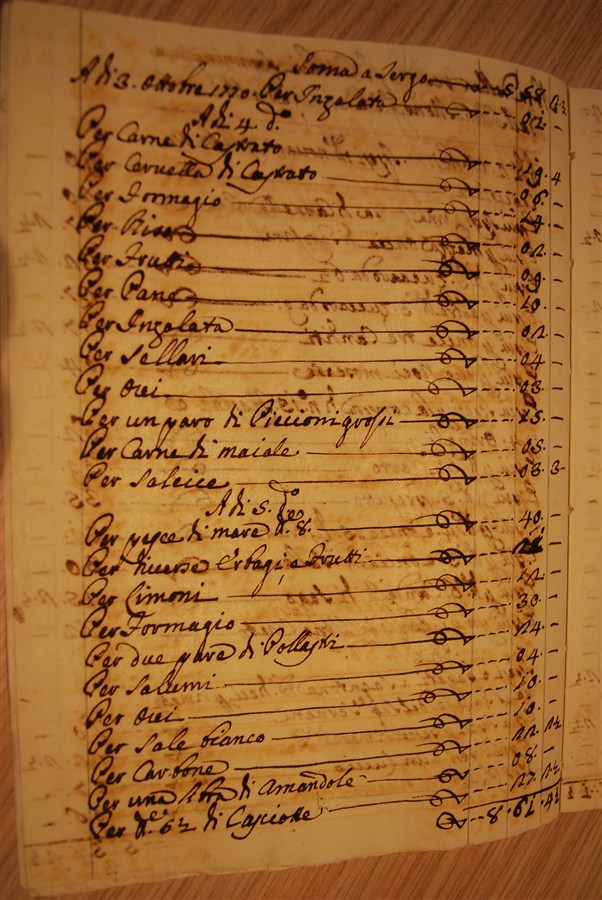 Soma a tergo 5 58
A di 3. Ottobre 1770. Per Inzalata 02
A di 4 do
Per Carne di Castrato 19 4
Per Cervella di Castrato 06
Per Formagio 14
Per Riso 02
Per Frutti 09
Per Pane 10
Per Inzalata 02
Per Sellari 04
Per Ovi 03
Per un paro di Piccioni grossi 25
Per Carne di maiale 05
Per Salcicce 03 3
A di 5. do
Per pesce di mare 8. 40
Per diverse Erbagi, e Frutti
Per Limoni 12
Per Formagio 30
Per due para di Pollastri 24
Per Salumi 04
Per Ovi 10
Per Sale bianco 10
Per Carbone 22
Per una libra di Amandole 08
Per 6½ di Casciotte 27
8. 61. 4½